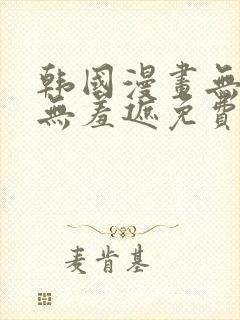 韩國漫畫無
無羞遮免費
麦肯基